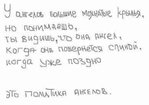 У ангелов большие мохнатые крылья,
но понимаешь,
ты видишь, что она ангел,
когда она повернётся спиной,
когда уже поздно
это политика ангелов.